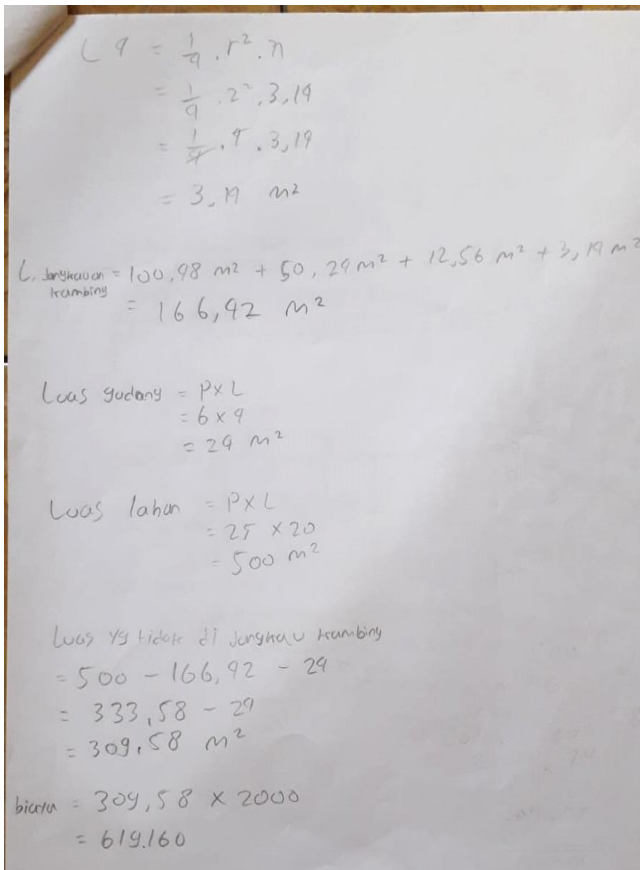 L 4 = 1/4 . r² . π
= 1/4 . 2² . 3,14
= 1/4 . 4 . 3,14
= 3,14 m²
L. Jangkauan kambing = 100,48 m² + 50,24 m² + 12,56 m² + 3,14 m²
= 166,42 m²
Luas gudang = P x L
= 6 x 4
= 24 m²
Luas lahan = P x L
= 25 x 20
= 500 m²
Luas yg tidak di Jangkau kambing
= 500 - 166,42 - 24
= 333,58 - 24
= 309,58 m²
biaya = 309,58 x 2000
= 619.160